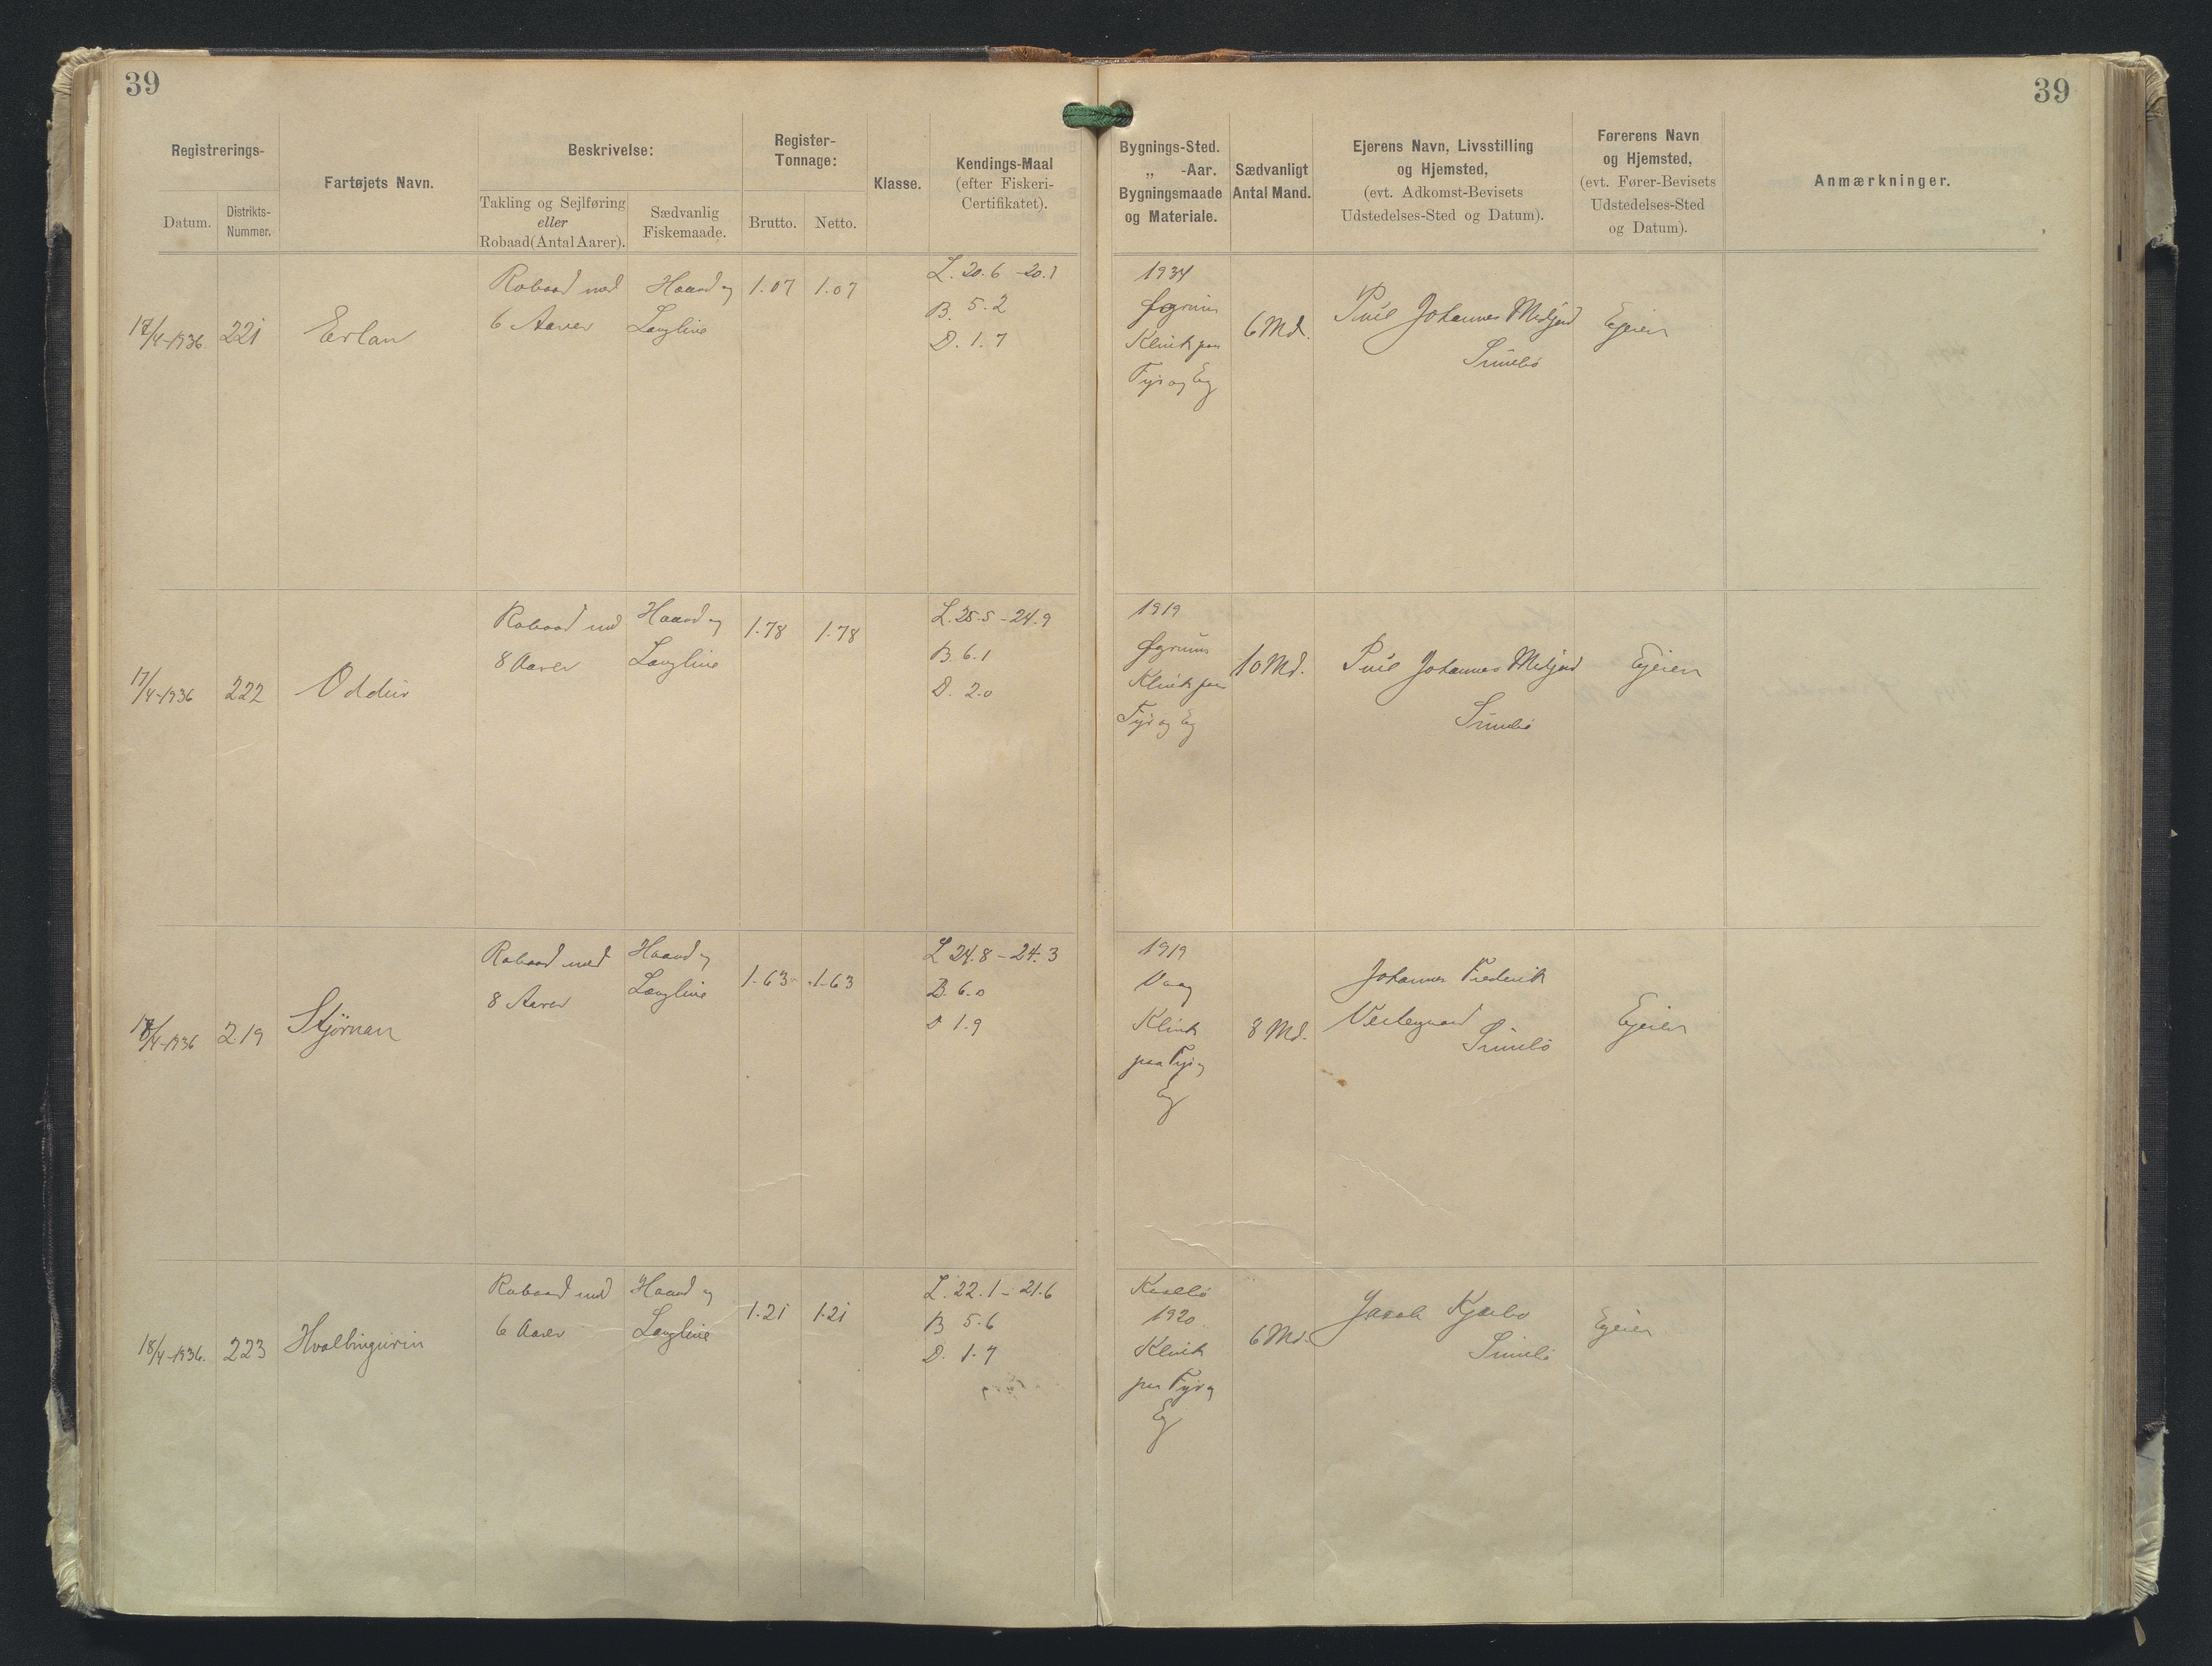 39
39
Registrerings-
Datum.
Distrikts-
Nummer.
Fartøjets Navn.
Beskrivelse:
Takling og Sejlføring
eller
Robaad(Antal Aarer).
Sædvanlig
Fiskemaade.
Register-
Tonnage:
Brutto.
Netto.
Klasse.
Kendings-Maal
(efter Fiskeri-
Certifikatet).
Bygnings-Sted.
„ -Aar.
Bygningsmaade
og Materiale.
Sædvanligt
Antal Mand.
Ejerens Navn, Livsstilling
og Hjemsted,
(evt. Adkomst-Bevisets
Udstedelses-Sted og Datum).
Førerens Navn
og Hjemsted,
(evt. Fører-Bevisets
Udstedelses-Sted
og Datum).
Anmærkninger.
17/4-1936.
221
Erlan
Robaad med
6 Aarer
Haand og
Langline
1.07
1.07
L. 20.6 - 20.1
B. 5.2
D. 1.7
1934
Øgrum
Klink paa
Fyr og Eg
6 Md.
Johannes
Ejeren
17/4-1936
222
Oddur
Robaad med
8 Aarer
Haand og
Langline
1.78
1.78
L. 25.5 - 24.9
B. 6.1
D. 2.0
1919
Øgrum
Klink paa
Fyr og Eg
10 Md.
Johannes
Ejeren
/4-1936
219
Stjørnan
Robaad med
8 Aarer
Haand og
Langline
1.63
1.63
L 24.8 - 24.3
B. 6.0
D 1.9
1919
Vaag
Klink
paa Fyr og
Eg
8 Md.
Johannes Frederik
Vestergaard
Ejeren
18/4-1936.
223
Hvalbingurin
Robaad med
6 Aarer
Haand og
Langline
1.21
1.21
L. 22.1 - 21.6
B 5.6
D. 1.7
1920
Klink
paa Fyr og
Eg
6 Md.
Jacob Kjærbo
Ejeren